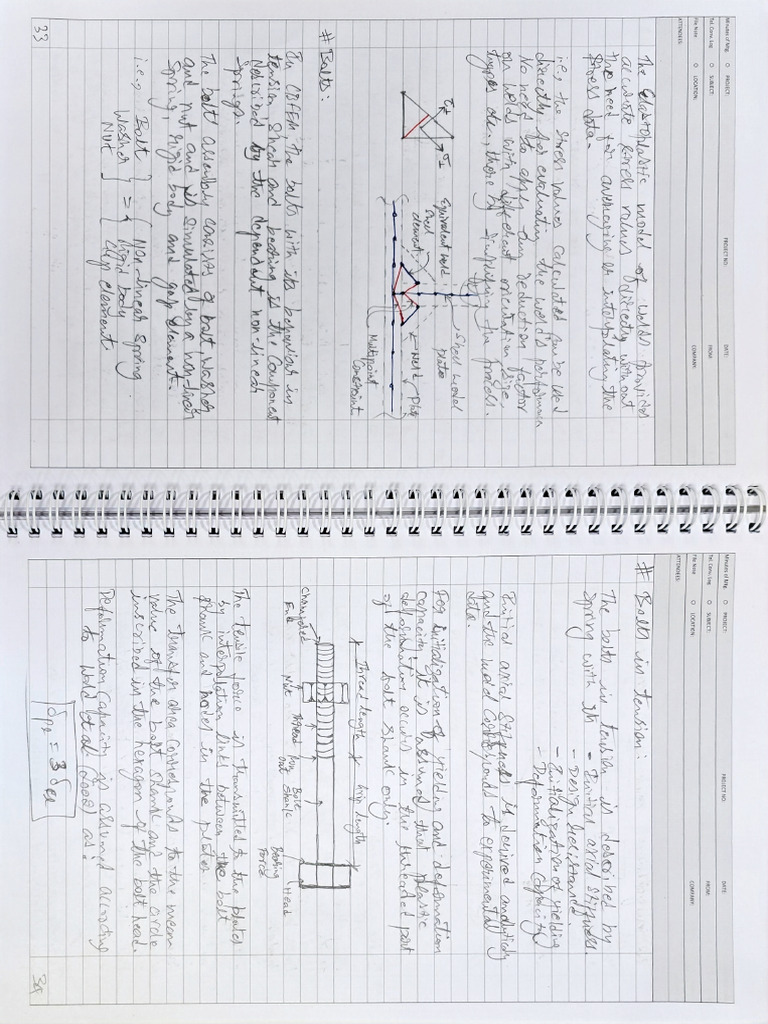 Minutes of Mtg.
PROJECT:
PROJECT NO:
DATE:
Tel. Conv. Log
SUBJECT:
FROM:
File Note
LOCATION:
COMPANY:
ATTENDEES:
The Elastoplastic model of welds provides
accurate stress values directly without
the need for averaging or interpolating the
stress data.
i.e., the stress values calculated can be used
directly for evaluating the welds performance
No need to apply any reduction factor
on welds with different orientation, size,
types etc., there by simplifying the process.
Equivalent weld
element
Steel model
plates
Weld
Multipoint
Constraint
# Bolts:
In CBFEM the bolts with its behaviour in
tension, shear and bearing is the component
described by the dependent non-linear
springs.
The bolt assembly consists of bolt, washer
and nut and is simulated by a non-linear
spring, rigid body and gap element.
i.e., Bolt
Washer
Nut
=
Non-linear spring
Rigid body
Gap element
33
Minutes of Mtg.
PROJECT:
PROJECT NO:
DATE:
Tel. Conv. Log
SUBJECT:
FROM:
File Note
LOCATION:
COMPANY:
ATTENDEES:
# Bolts in tension:
The bolts in tension is described by
spring with its - Initial axial stiffness.
- Design Resistance.
- Initialization of yielding
- Deformation Capacity
Initial axial stiffness is derived analytically
and the model corresponds to experimental
data.
For initialization of yielding and deformation
capacity, it is assumed that plastic
deformation occurs in the threaded part
of the bolt shank only.
Thread length
Grip length
Chamfered
End
Nut
Thread
Shank
Bearing
Force
Head
The tensile force is transmitted to the plates
by interpolation links between the bolt
shank and nodes in the plates.
The transfer area corresponds to the mean
value of the bolt shank and the circle
inscribed in the hexagon of the bolt head.
Deformation Capacity is assumed according
to Wald et al.